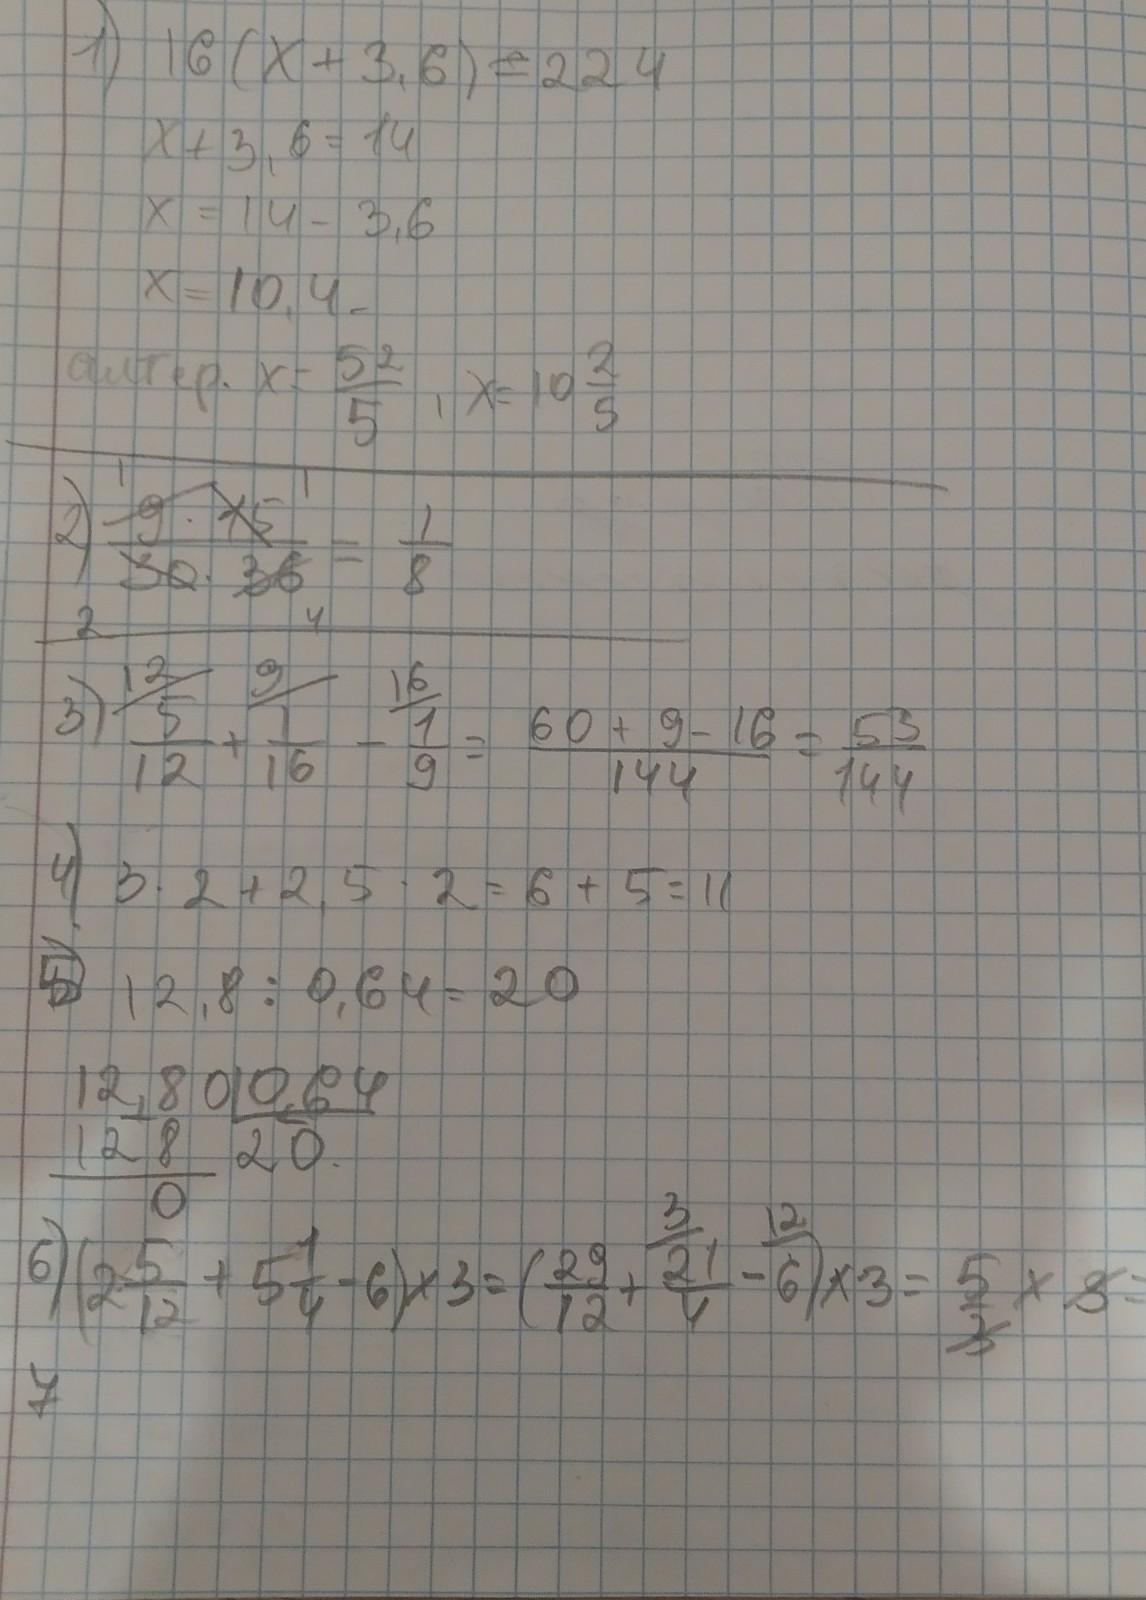 1) 16(x+3,6)=224
x+3,6=14
x=14-3,6
x=10,4
алтер. x=52/5, x=10 2/5
1 1
2) 9·15/30·36 = 1/8
2 4
12 9 16
3) 5/12 + 1/16 - 1/9 = 60+9-16/144 = 53/144
4) 3·2+2,5·2=6+5=11
5) 12,8:0,64=20
12,80 0,64
128 20
0
3 12
6) (2 5/12 + 5 1/4 - 6)×3=(29/12 + 21/4 - 6)×3= 5/3 × 3 =
7